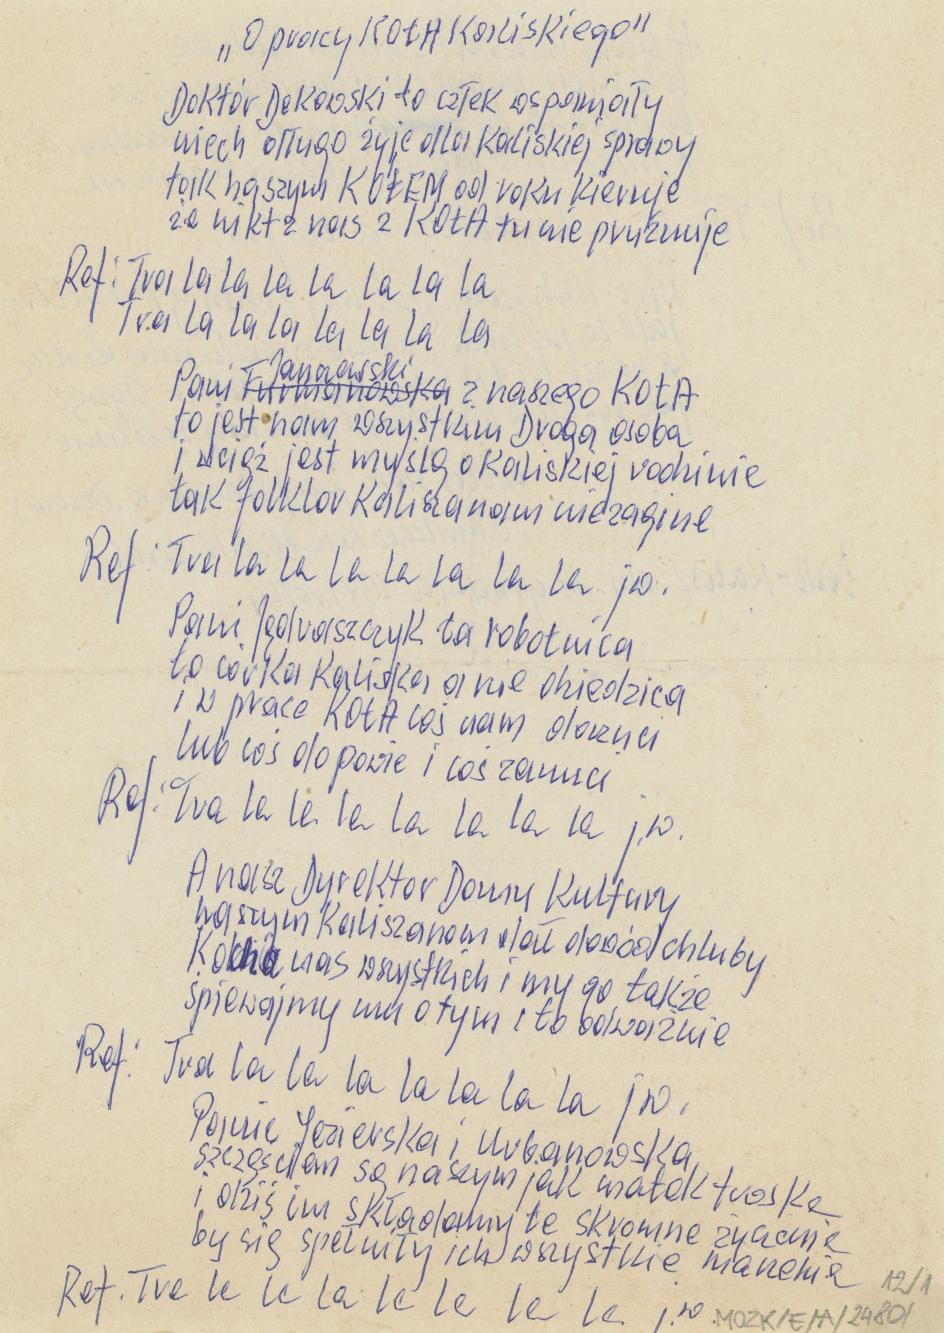 „O pracy KOŁA Kaliskiego"
Doktór Dekowski to człek wspaniały
niech długo żyje dla Kaliskiej sprawy
tak naszym KOŁEM od roku kieruje
że nikt z nas z KOŁA tu nie próżnuje
Ref: Tra la la la la la la la
Tra la la la la la la la
Janowski
Pani Furmanowska z naszego KOŁA
to jest nam wszystkim Droga osoba
i wciąż jest myślą o Kaliskiej rodzinie
tak folklor Kaliszanom nie zaginie
Ref: Tra la la la la la la la jw.
Pani Jędraszczyk ta robotnica
to córka Kaliska a nie dziedzica
i w prace KOŁA coś nam dorzuci
lub coś dopowie i coś zanuci
Ref: Tra la la la la la la la j.w.
A nasz Dyrektor Domu Kultury
naszym Kaliszanom dał dowód chluby
Kocha nas wszystkich i my go także
śpiewajmy mu o tym i to odważnie
Ref: Tra la la la la la la la jw.
Panie Jezierska i Urbanowska
szczęściem są naszym jak matek troska
i dziś im składamy te skromne życzenie
by się spełniły ich wszystkie marzenia
Ref. Tra la la la la la la la j.w.
12/1
MOZK/E/A/2480/